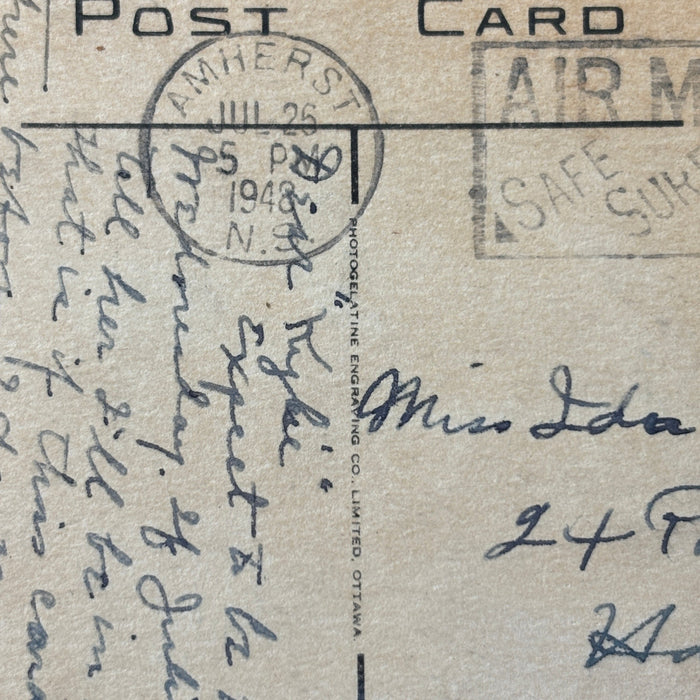 POST CARD
AMHERST
JUL 26
5 PM
1948
N.S.
AIR M
SAFE
SURE
PHOTOGELATINE ENGRAVING CO., LIMITED, OTTAWA
Miss Ida
24
Dear "Kylie",
Expect to be
Wednesday. If
tell her I'll be in
that is if this card